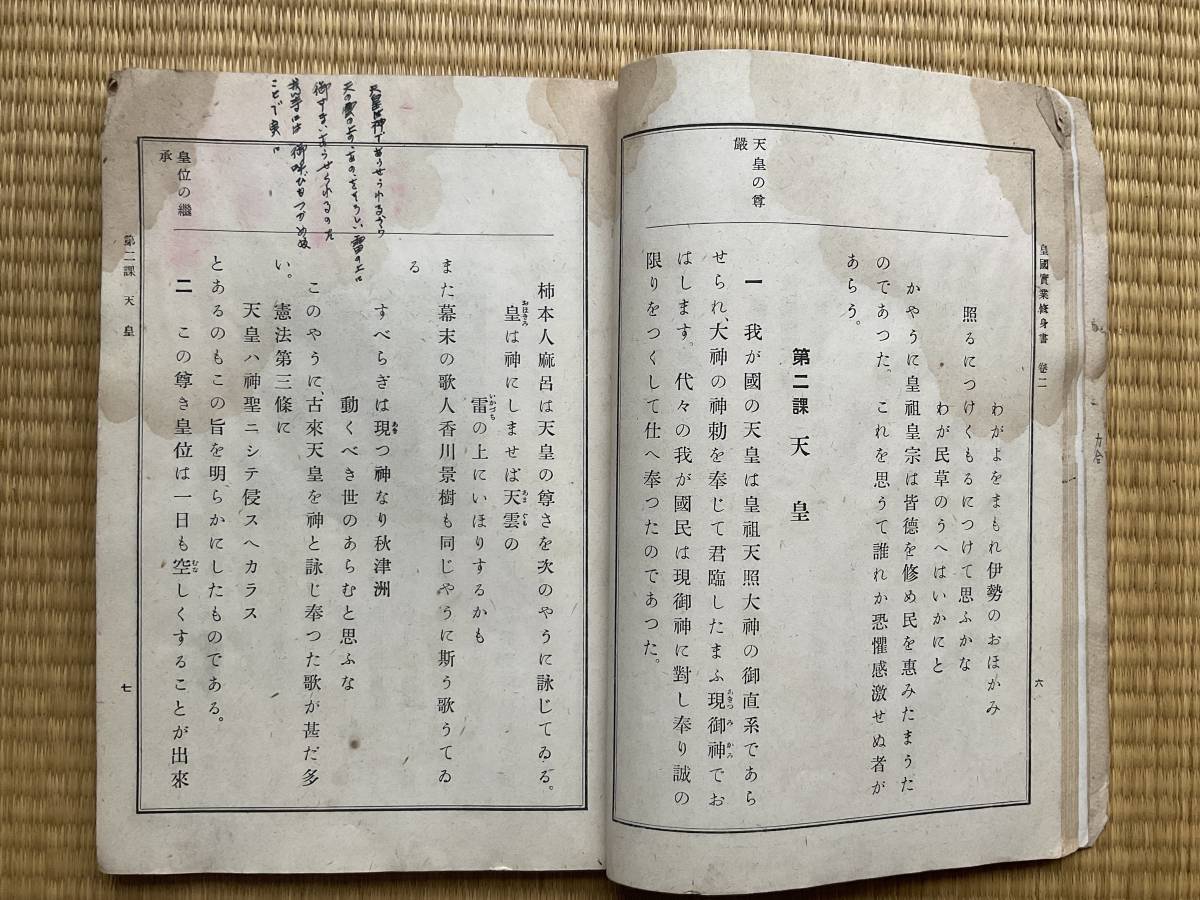 皇國實業修身書 卷二
六
天皇の尊
嚴
わがよをまもれ伊勢のおほがみ
照るにつけくもるにつけて思ふかな
わが民草のうへはいかにと
かやうに皇祖皇宗は皆德を修め民を惠みたまうた
のであつた。これを思うて誰れか恐懼感激せぬ者が
あらう。
第二課 天皇
一 我が國の天皇は皇祖天照大神の御直系であら
せられ、大神の神勅を奉じて君臨したまふ現御神でお
はします。代々の我が國民は現御神に對し奉り誠の
限りをつくして仕へ奉つたのであつた。
柿本人麻呂は天皇の尊さを次のやうに詠じてゐる。
皇は神にしませば天雲の
雷の上にいほりするかも
また幕末の歌人香川景樹も同じやうに斯う歌うてゐ
る
すべらぎは現つ神なり秋津洲
動くべき世のあらむと思ふな
このやうに、古來天皇を神と詠じ奉つた歌が甚だ多
い。憲法第三條に
天皇ハ神聖ニシテ侵スヘカラス
とあるのもこの旨を明らかにしたものである。
二 この尊き皇位は一日も空しくすることが出來
皇位の繼
承
第二課 天皇
七
天皇は神であうせられるから
天の雲の上の、雷の上に